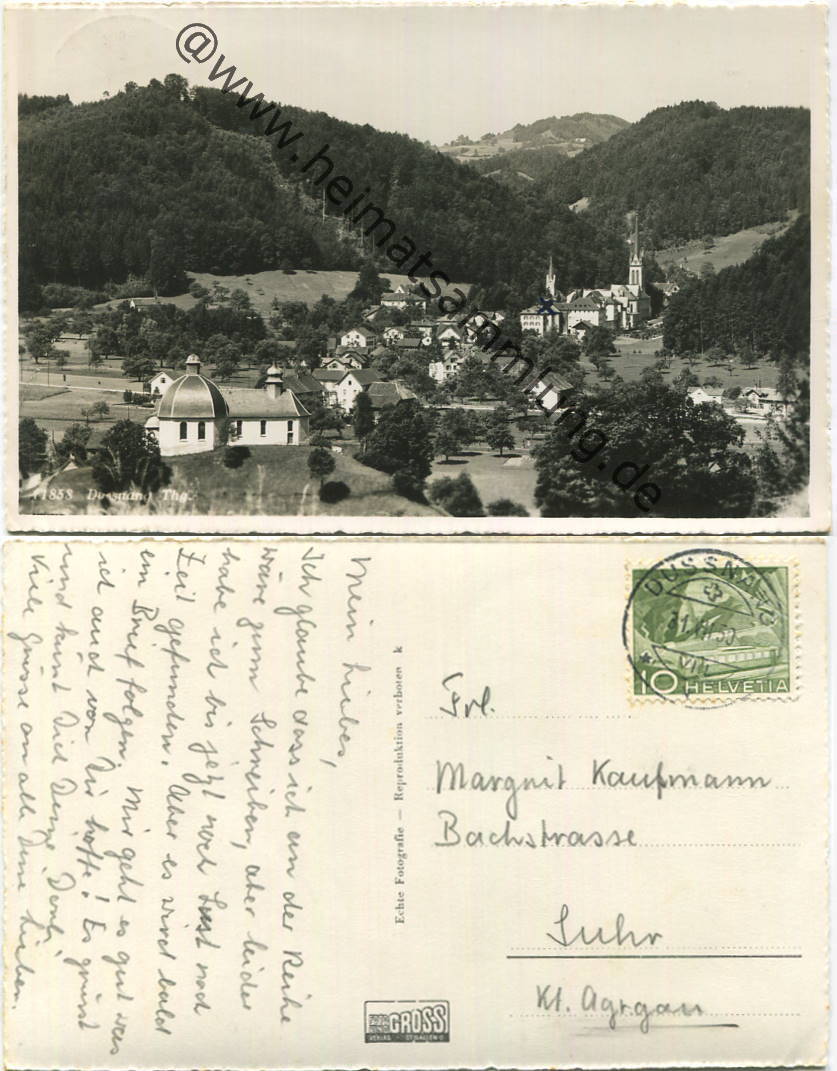 @www.heimatsammlung.de
11858 Dussnang Thg.
Mein Liebes,
Ich glaube dass ich an der Reihe
wäre zum Schreiben, aber leider
habe ich bis jetzt weder Lust noch
Zeit gefunden. Aber es wird bald
ein Brief folgen. Mir geht es gut was
ich auch von Dir hoffe! Es grüsst
und küsst Dich Deine
Viele Grüsse an alle Deine Lieben.
Echte Fotografie — Reproduktion verboten k
DUSSNANG
31.VII.50
VII
10 HELVETIA
Frl.
Margrit Kaufmann
Bachstrasse
Suhr
Kt. Aargau
FOTO GROSS
VERLAG ST. GALLEN O